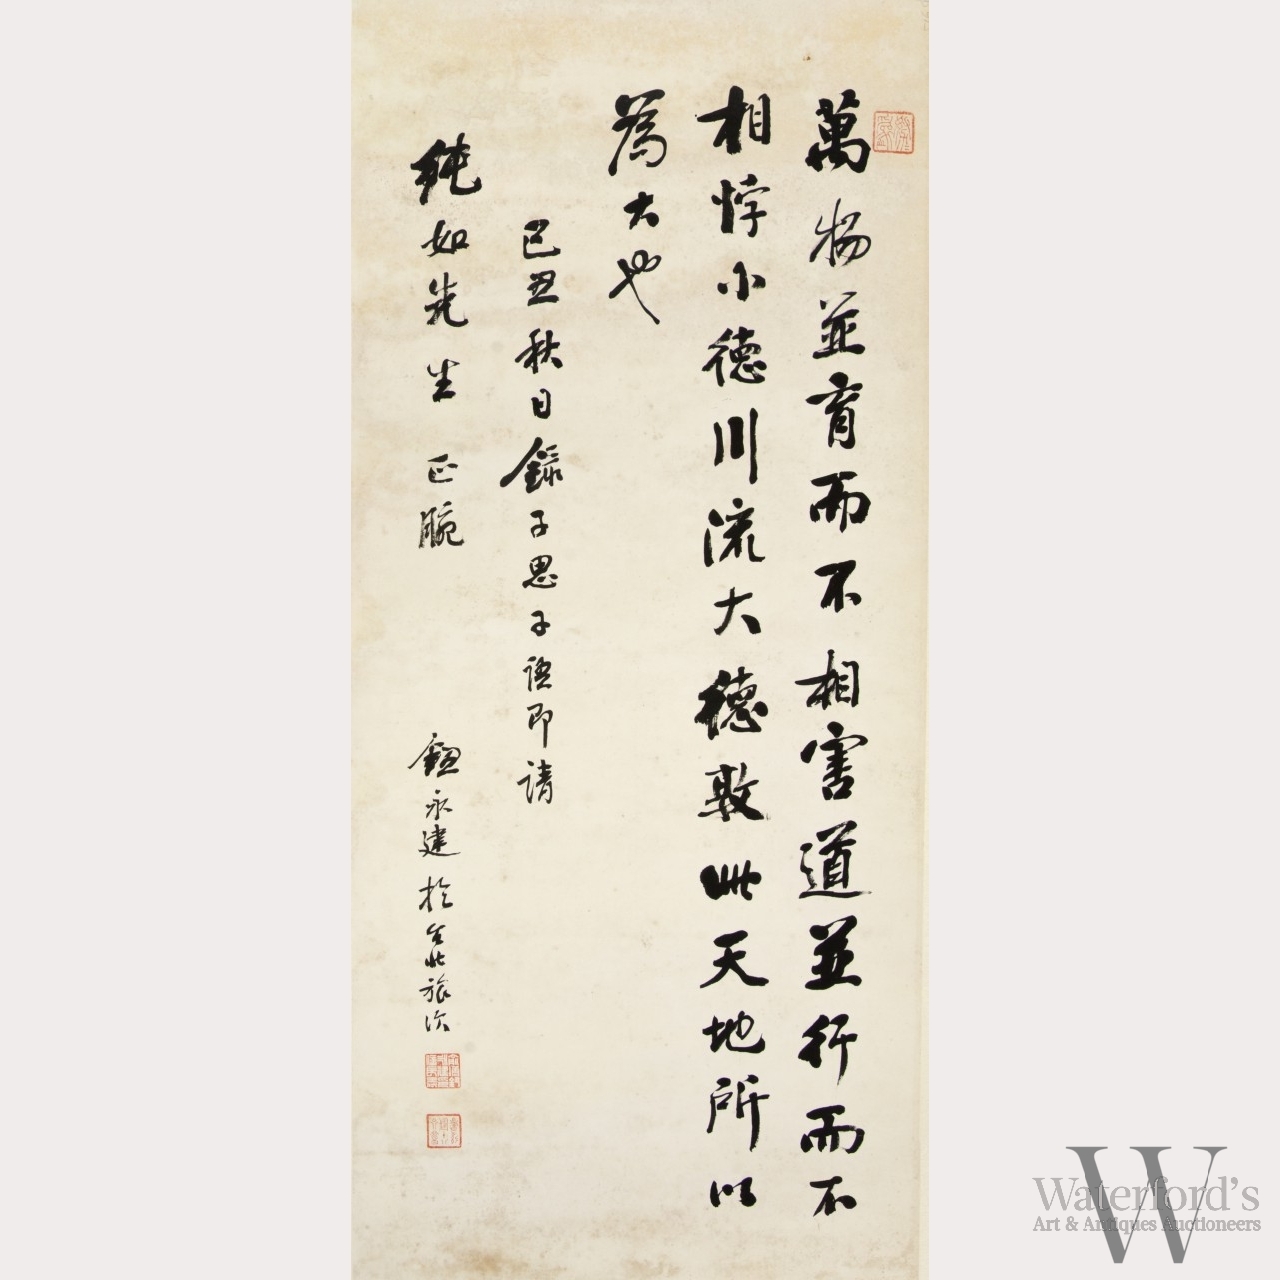 萬物並育而不相害道並行而不
相悖小德川流大德敦此天地所以
為大也
己丑秋日錄子思子語即請
純如先生 正腕
鈕永建於台北旅次
Waterford's
Art & Antiques Auctioneers
W